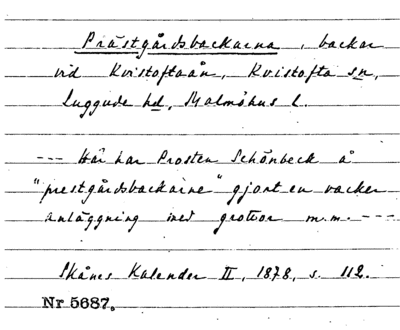 Prästgårdsbackarna, backar
vid Kvistoftaån, Kvistofta sn,
Luggude hd, Malmöhus l.
--- Här har Prosten Schönbeck å
"prestgårdsbackarne" gjort en vacker
anläggning med grottor m.m. ---
Skånes Kalender II, 1878, s. 112.
Nr 5687.